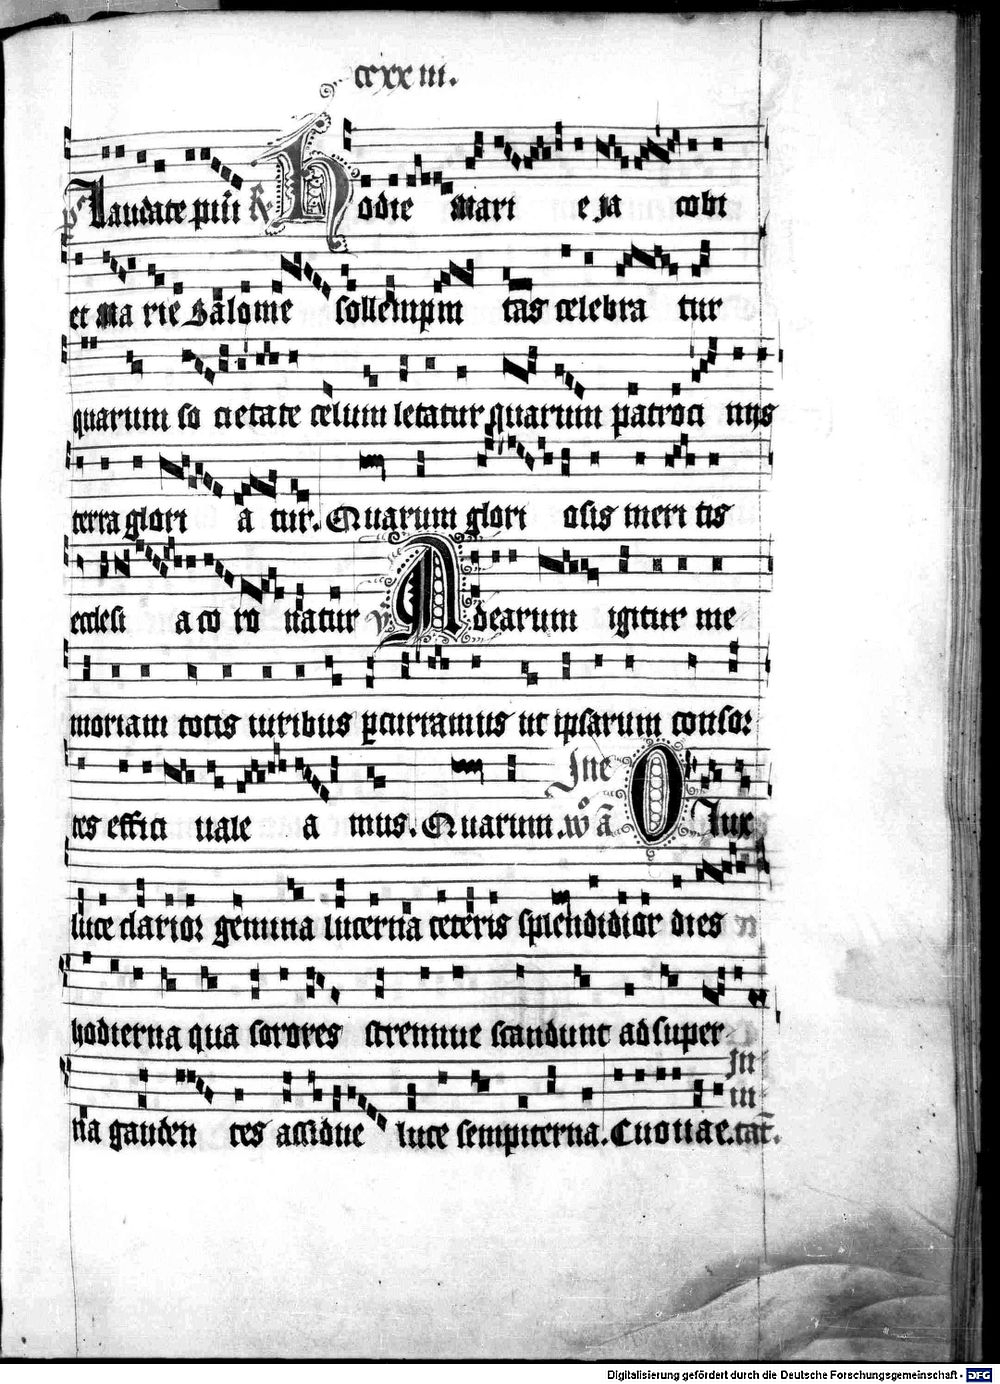 ccxxiii.
ps Laudate pu͞i R Hodie Mari e Ja cobi
et Ma rie Salome sollempni tas celebra tur
quarum so cietate celum letatur quarum patroci nijs
terra glori a tur. Quarum glori osis meri tis
ecclesi a co ro natur V Ad earum igitur me
moriam totis viribus ꝑcurramus ut ipsarum consor
tes effici uale a mus. Quarum. O Lux
luce clarior gemina lucerna ceteris splendidior dies
hodierna qua sorores strennue scandunt ad super
na gauden tes assidue luce sempiterna. Euouae.
Digitalisierung gefördert durch die Deutsche Forschungsgemeinschaft - DFG